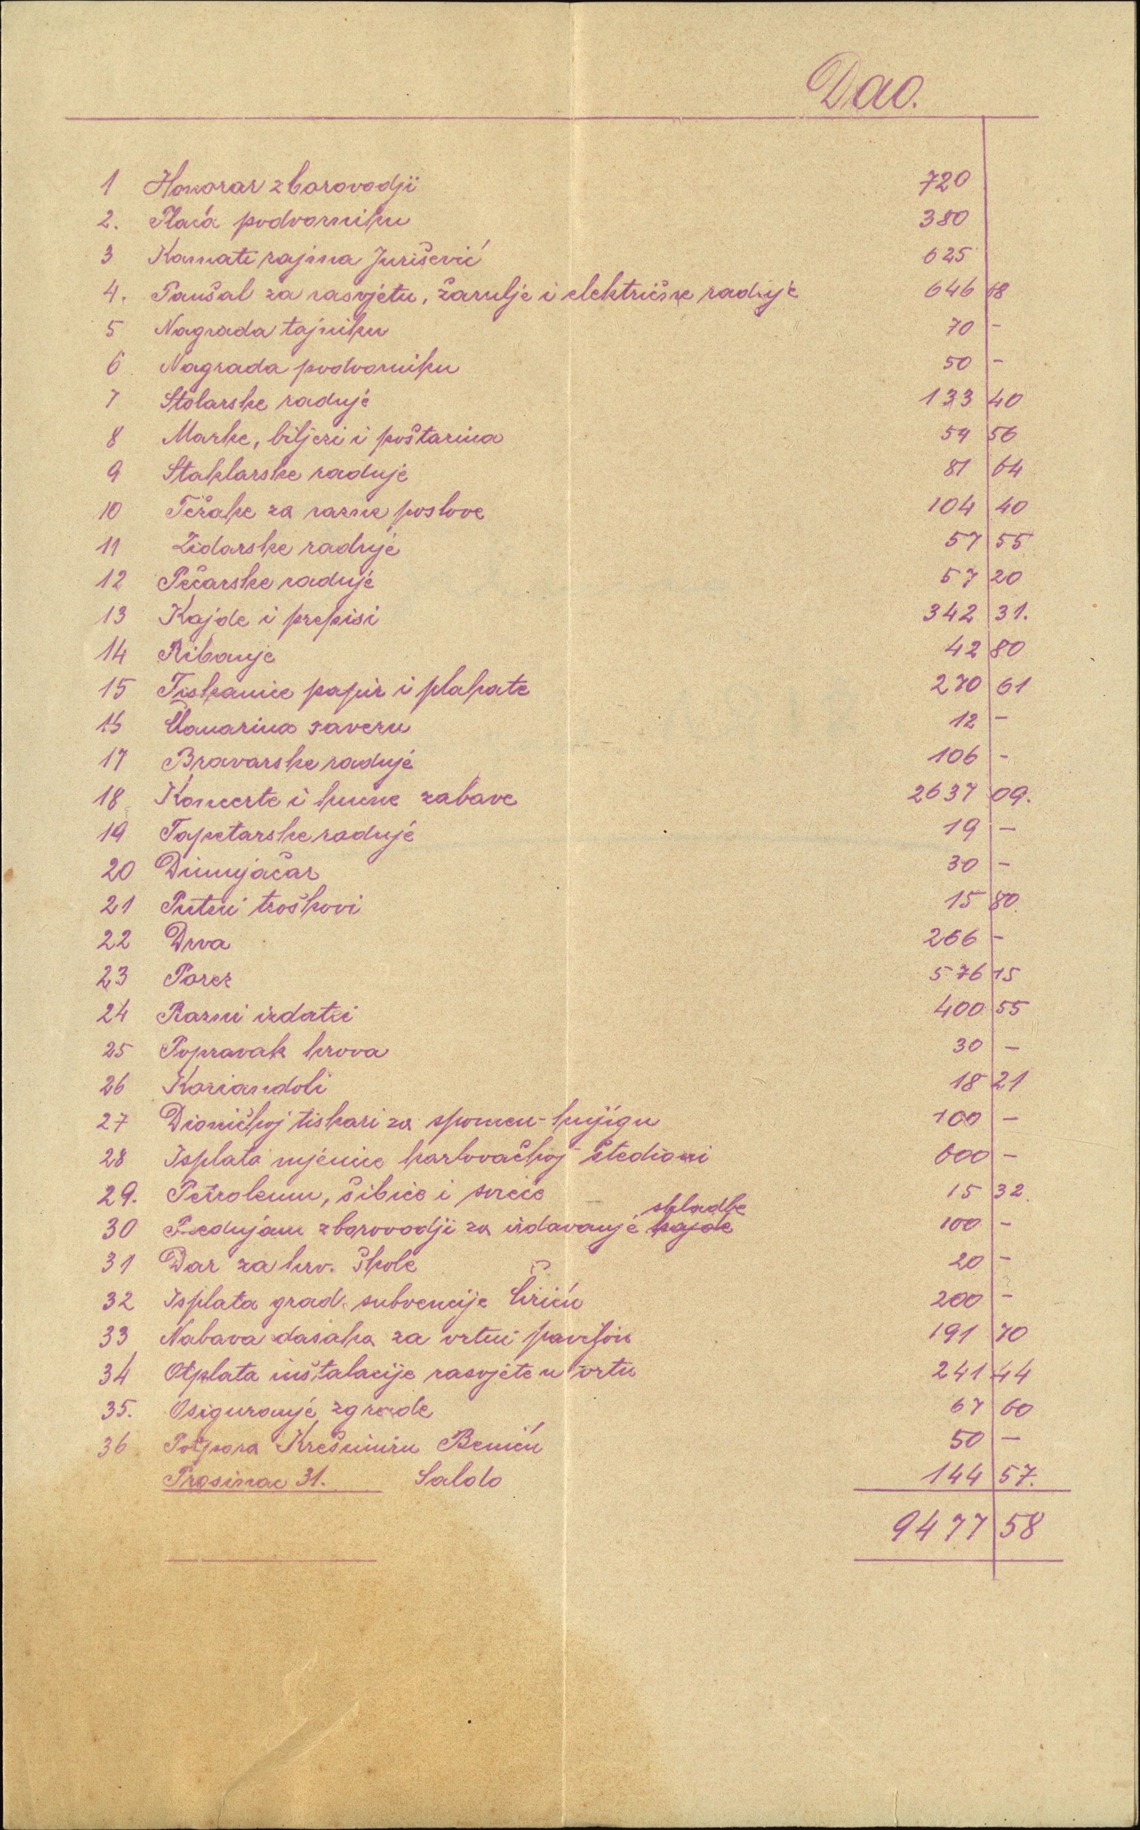 Dao.
1 Honorar zborovodji 720
2. Plaća podvorniku 380
3 Kamati rajma Jurišević 625
4. Paušal za rasvjetu, žarulje i električne radnje 646 18
5 Nagrada tajniku 70 -
6 Nagrada podvorniku 50 -
7 Stolarske radnje 133 40
8 Marke, biljezi i poštarina 54 56
9 Staklarske radnje 81 64
10 Težake za razne poslove 104 40
11 Zidarske radnje 57 55
12 Pećarske radnje 57 20
13 Kajde i prepisi 342 31.
14 Ribanje 42 80
15 Tiskanice papir i plakate 270 61
16 Članarina savezu 12 -
17 Bravarske radnje 106 -
18 Koncerte i kućne zabave 2637 09.
19 Tapetarske radnje 19 -
20 Dimnjačar 30 -
21 Putni troškovi 15 80.
22 Drva 266 -
23 Porez 576 15
24 Razni izdatci 400 55
25 Popravak krova 30 -
26 Koriandoli 18 21
27 Dioničkoj tiskari za spomen-knjigu 100 -
28 Isplata mjenice karlovačkoj štedioni 600 -
29. Petroleum, šibice i svieće 15 32.
skladbe
30 Predujam zborovodji za izdavanje kajde 100 -
31 Dar za hrv. škole 20 -
32 Isplata grad. subvencije 200 -
33 Nabava dasaka za vrtni paviljon 191 70
34 Otplata instalacije rasvjete u vrtu 241 44
35. Osiguranje zgrade 67 60
36 Potpora Krešimiru Beniću 50 -
Prosinac 31. Saldo 144 57.
9477 58